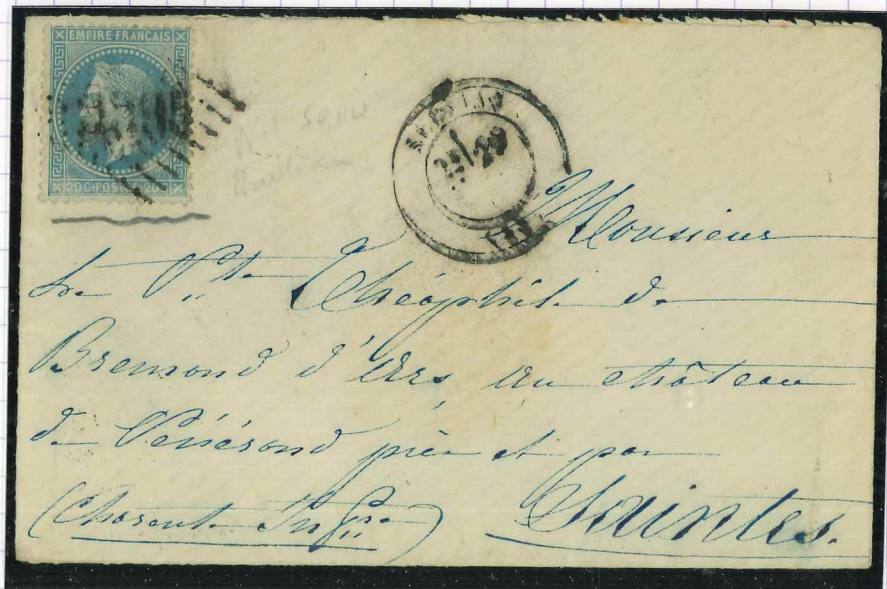 EMPIRE FRANCAIS
20 C POS 20
29
Monsieur
Le Vte Théophile de
Bremond d'Ars, au château
de Vénérand près et par
(Charente Infre) Saintes.